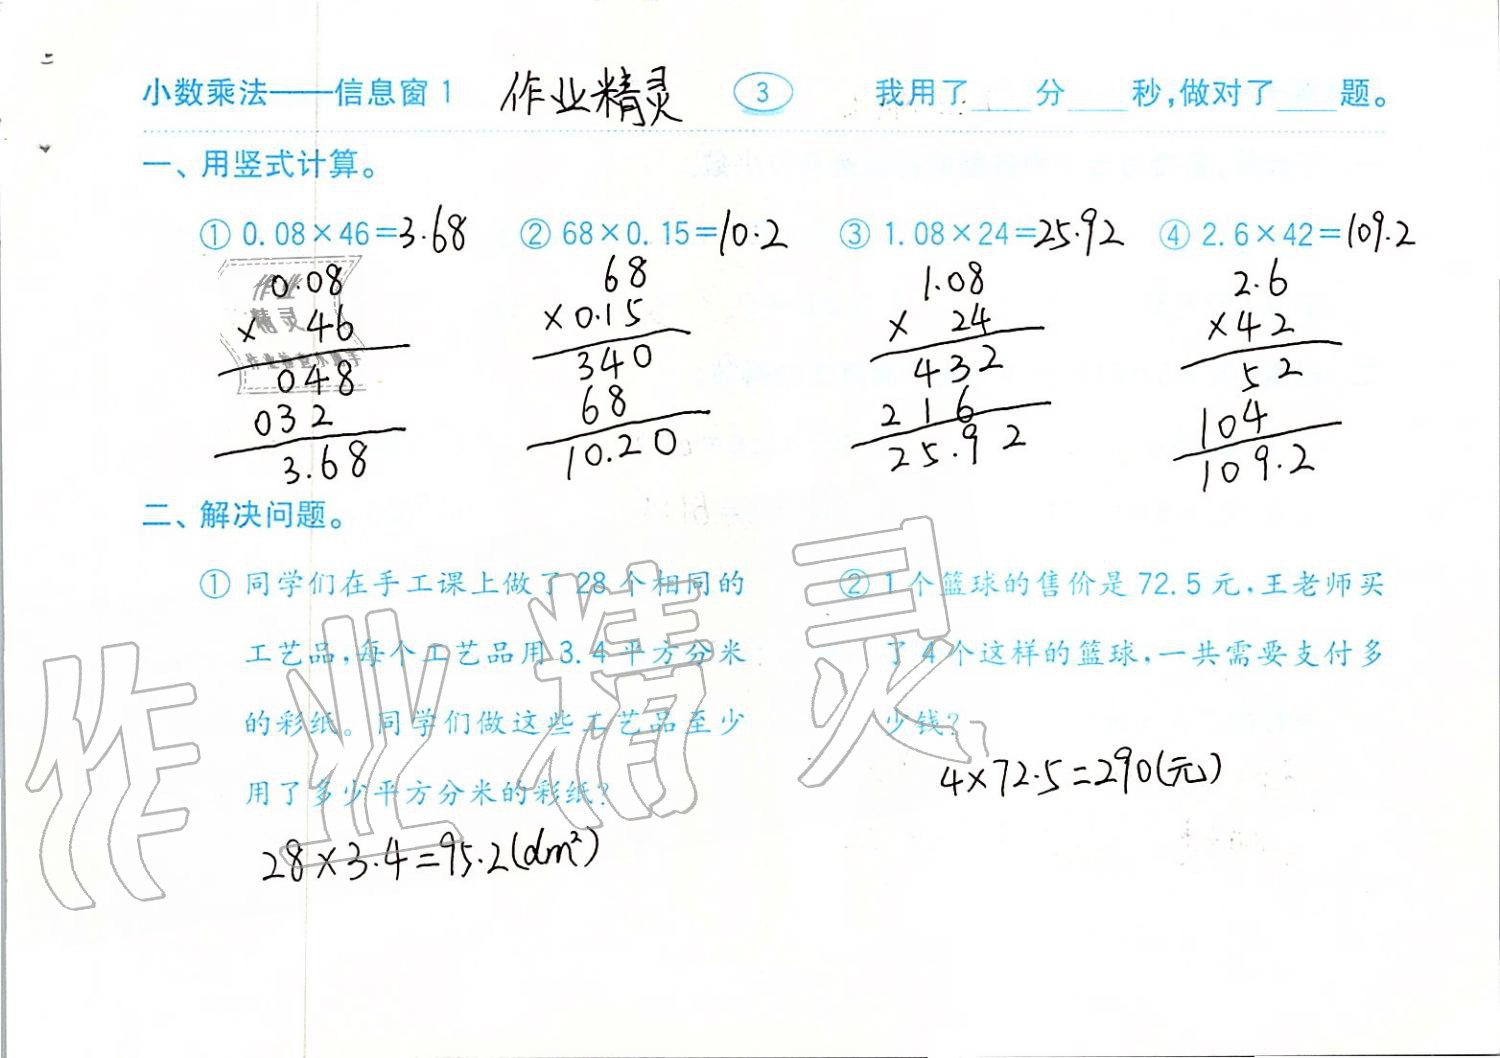 小数乘法——信息窗1 作业精灵 3 我用了____分____秒,做对了____题。
一、用竖式计算。
① 0.08×46=3.68 ② 68×0.15=10.2 ③ 1.08×24=25.92 ④ 2.6×42=109.2
0.08 68 1.08 2.6
× 46 ×0.15 × 24 ×42
048 340 432 52
032 68 216 104
3.68 10.20 25.92 109.2
二、解决问题。
① 同学们在手工课上做了28个相同的
工艺品,每个工艺品用3.4平方分米
的彩纸。同学们做这些工艺品至少
用了多少平方分米的彩纸?
28×3.4=95.2(dm²)
② 1个篮球的售价是72.5元,王老师买
了4个这样的篮球,一共需要支付多
少钱?
4×72.5=290(元)
作业精灵
作业
精灵